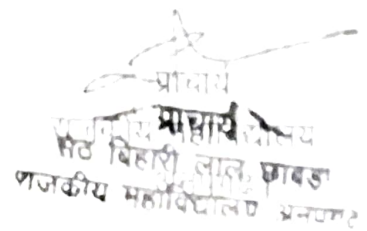 प्राचार्य
प्राचार्य
सेठ बिहारी लाल छाबड़ा
राजकीय महाविद्यालय अनूपगढ़